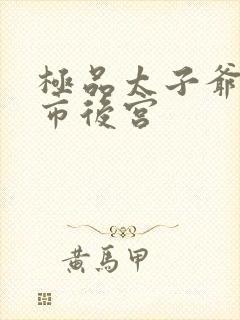 極品太子爺
市後宮
黃馬甲